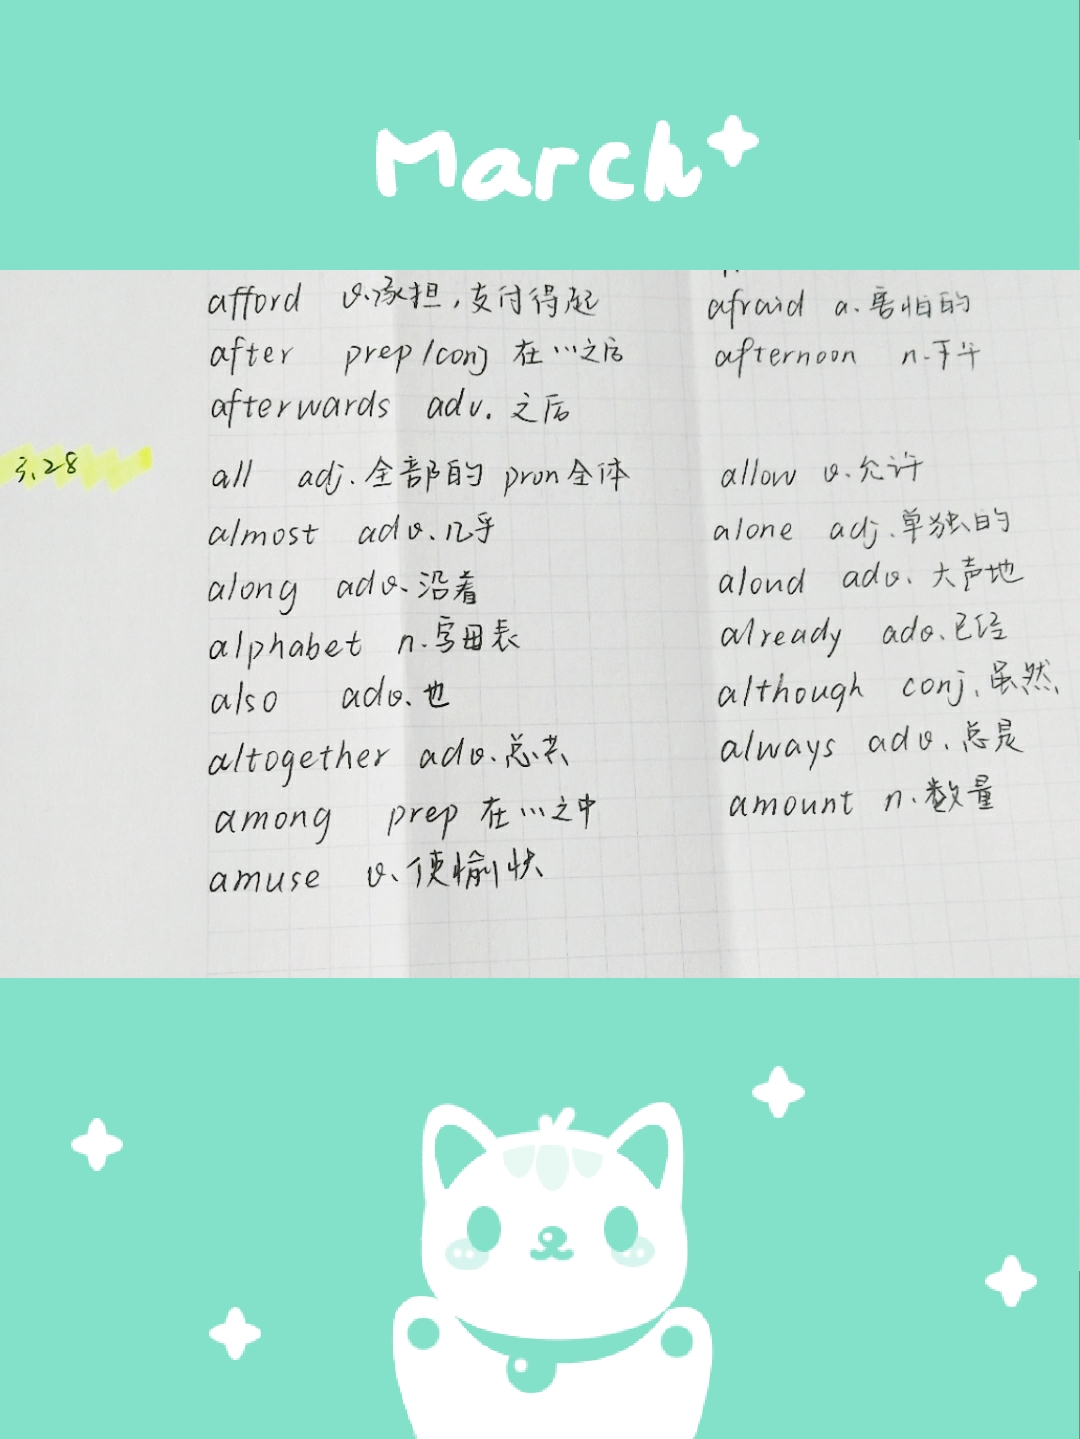 March
afford v.承担,支付得起 afraid a.害怕的
after prep/conj 在…之后 afternoon n.下午
afterwards adv.之后
3.28 all adj.全部的 pron全体 allow v.允许
almost adv.几乎 alone adj.单独的
along adv.沿着 aloud adv.大声地
alphabet n.字母表 already adv.已经
also adv.也 although conj.虽然
altogether adv.总共 always adv.总是
among prep 在…之中 amount n.数量
amuse v.使愉快